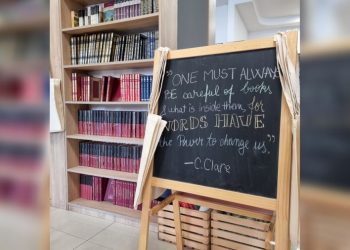 "ONE MUST ALWAY
BE careful of books
& what is inside them, for
WORDS HAVE
the Power to change us."
—C. Clare